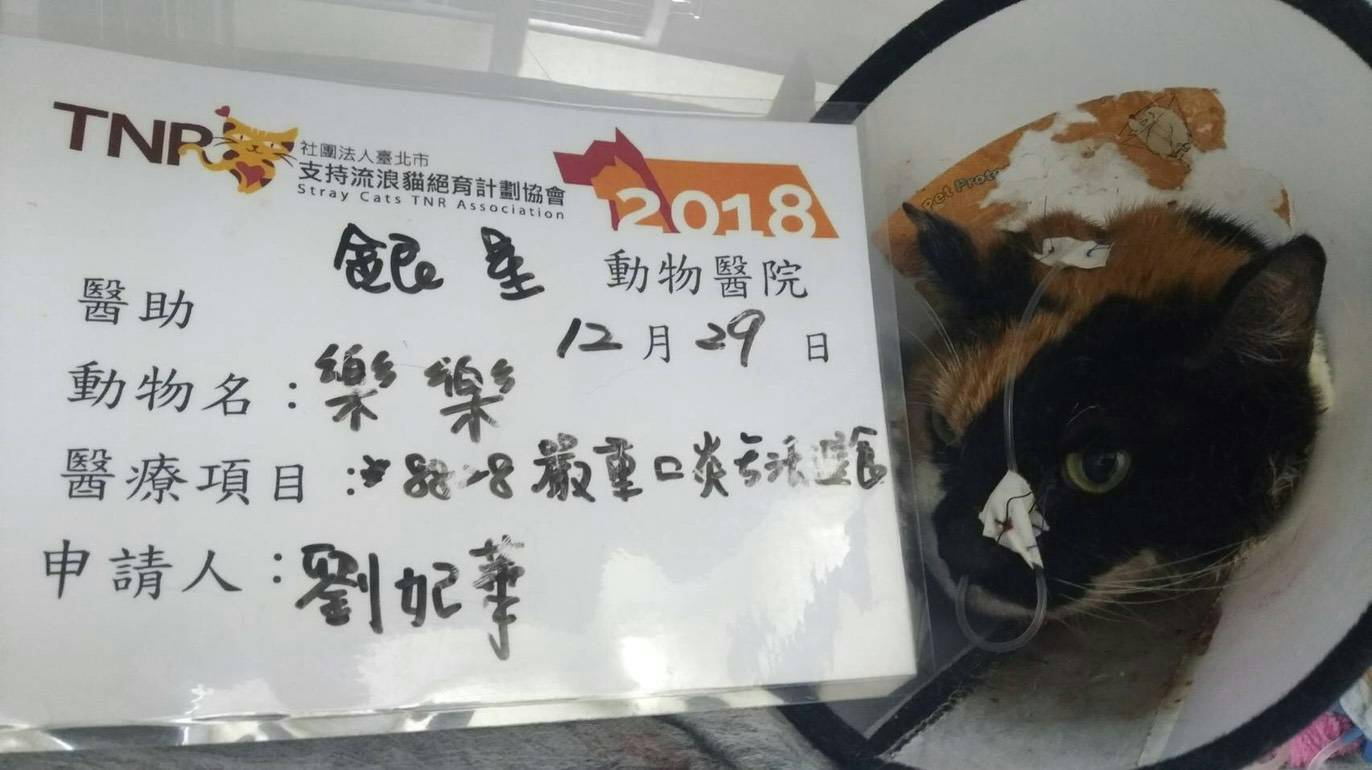 TNR
社團法人臺北市
支持流浪貓絕育計劃協會
Stray Cats TNR Association
2018
醫助 銀星 動物醫院
12月29日
動物名：樂樂
醫療項目：*8828嚴重口炎無法進食
申請人：劉妃華
Pet Prote